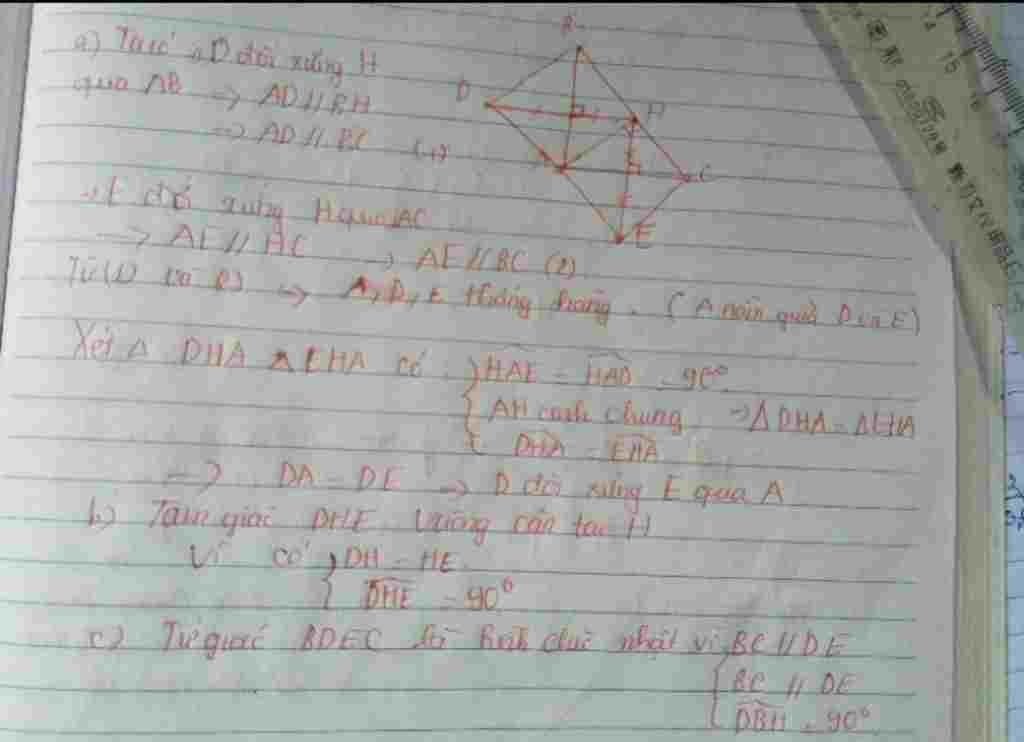 a) Ta có D đối xứng H
qua AB → AD // BH
→ AD // BC (1)
E đối xứng H qua AC
→ AE // HC → AE // BC (2)
Từ (1) và (2) → A, D, E thẳng hàng. (A nằm giữa D và E)
Xét Δ DHA Δ EHA có HAE = HAD = 90°
AH cạnh chung → Δ DHA = Δ EHA
DHA = EHA
→ DA = DE → D đối xứng E qua A
b) Tam giác DHE vuông cân tại H
Vì có DH = HE
DHE = 90°
c) Tứ giác BDEC là hình chữ nhật vì BC // DE
BC // DE
DBH = 90°
B
D
H
C
E
15